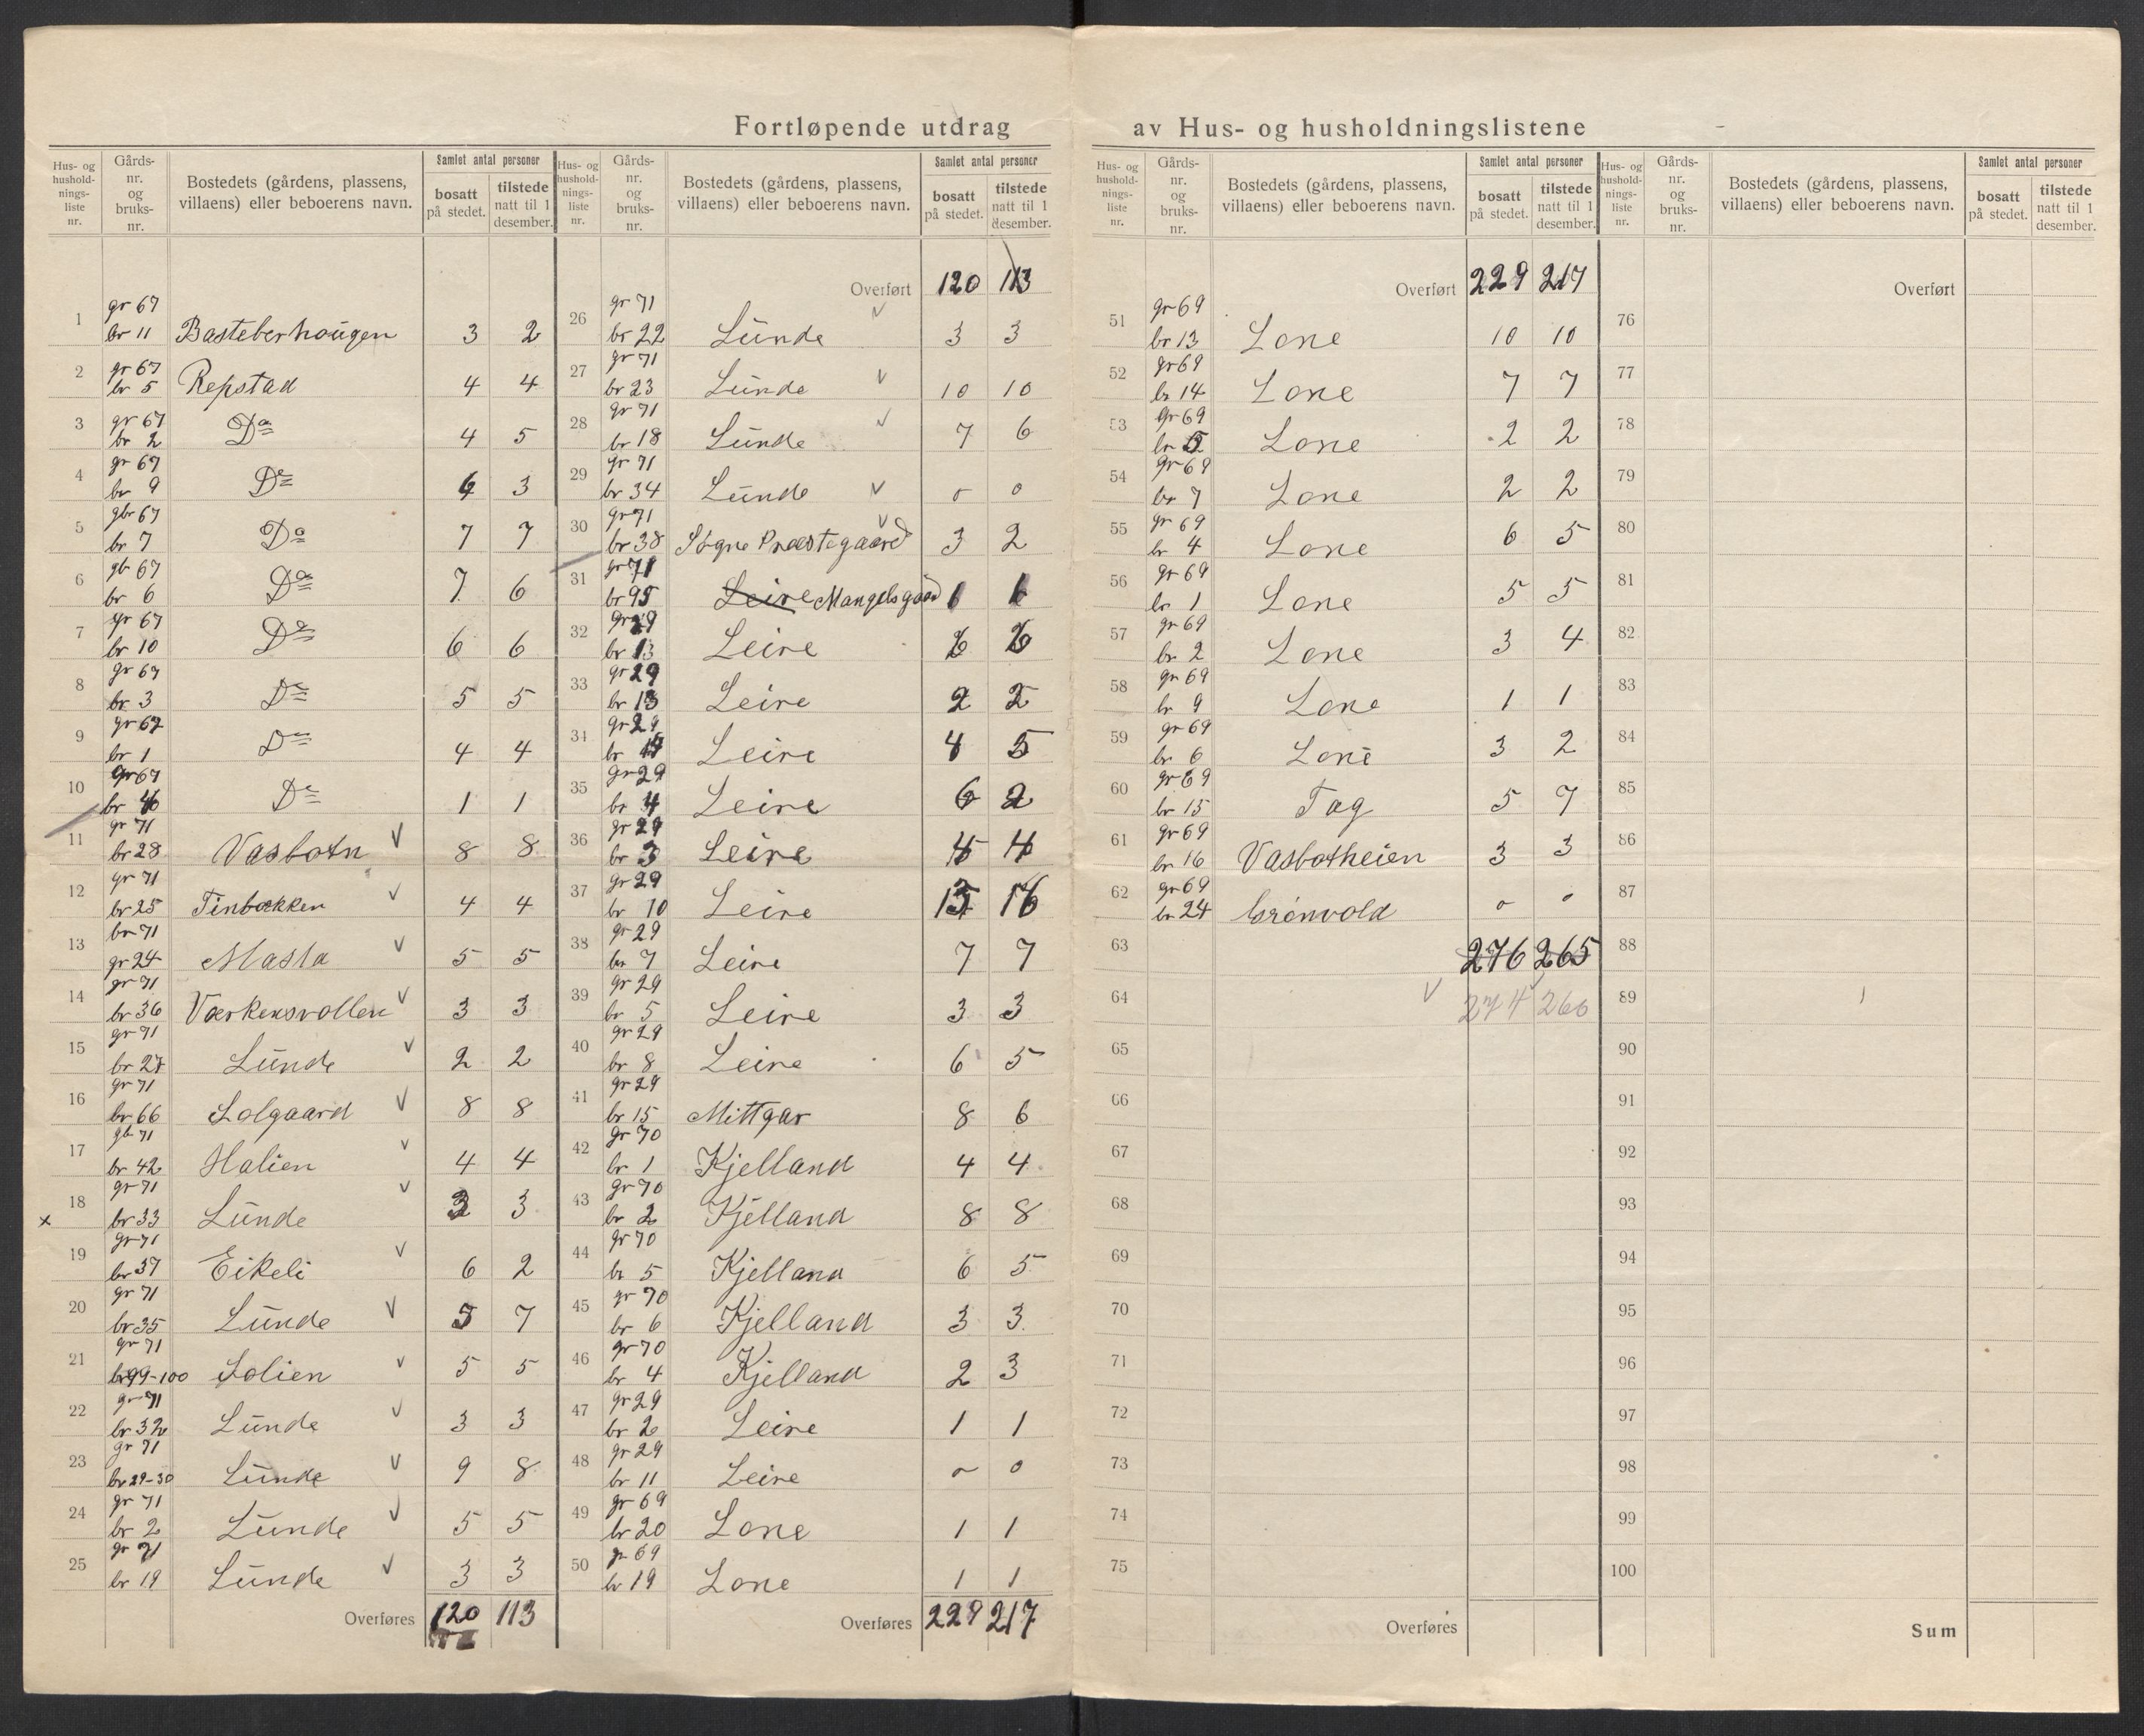 Fortløpende utdrag av Hus- og husholdningslistene
Hus- og hushold-nings-liste nr. Gårds-nr. og bruks-nr. Bostedets (gårdens, plassens, villaens) eller beboerens navn. Samlet antal personer bosatt på stedet. tilstede natt til 1 desember.
1 gr 67 br 11 Basteberhougen 3 2
2 gr 67 br 5 Repstad 4 4
3 gr 67 br 2 Do 4 5
4 gr 67 br 9 Do 3
5 gbr 67 br 7 Do 7 7
6 gb 67 br 6 Do 7 6
7 gr 67 br 10 Do 6 6
8 gr 67 br 3 Do 5 5
9 gr 67 br 1 Do 4 4
10 gr 67 br Do 1 1
11 gr 71 br 28 Vasbotn V 8 8
12 gr 71 br 25 Tinbækken V 4 4
13 br 71 gr 24 Masla V 5 5
14 gr 71 br 36 Værkensvollen V 3 3
15 gr 71 br 27 Lunde V 2 2
16 gr 71 br 66 Solgaard V 8 8
17 gb 71 br 42 Halien V 4 4
x 18 gr 71 br 33 Lunde V 3 3
19 gr 71 br 37 Eikeli V 6 2
20 gr 71 br 35 Lunde V 5 7
21 gr 71 br 99-100 Solien V 5 5
22 gr 71 br 32 Lunde V 3 3
23 gr 71 br 29-30 Lunde V 9 8
24 gr 71 br 2 Lunde V 5 5
25 gr 71 br 19 Lunde V 3 3
Overføres 120 113
Hus- og hushold-nings-liste nr. Gårds-nr. og bruks-nr. Bostedets (gårdens, plassens, villaens) eller beboerens navn. Samlet antal personer bosatt på stedet. tilstede natt til 1 desember.
Overført 120 113
26 gr 71 br 22 Lunde V 3 3
27 gr 71 br 23 Lunde V 10 10
28 gr 71 br 18 Lunde V 7 6
29 gr 71 br 34 Lunde V 0 0
30 gr 71 br 38 Søgne Præstegaard V 3 2
31 gr 71 br 95 Leire Mangelsgård 1 1
32 gr 29 br 13 Leire
33 gr 29 br 13 Leire 2 2
34 gr 29 br Leire 4 5
35 gr 29 br 4 Leire 6 2
36 gr 29 br 3 Leire 4 4
37 gr 29 br 10 Leire 16
38 gr 29 br 7 Leire 7 7
39 gr 29 br 5 Leire 3 3
40 gr 29 br 8 Leire 6 5
41 gr 29 br 15 Mittgar 8 6
42 gr 70 br 1 Kjelland 4 4
43 gr 70 br 2 Kjelland 8 8
44 gr 70 br 5 Kjelland 6 5
45 gr 70 br 6 Kjelland 3 3
46 gr 70 br 4 Kjelland 2 3
47 gr 29 br 2 Leire 1 1
48 gr 29 br 11 Leire 0 0
49 gr 69 br 20 Lone 1 1
50 gr 69 br 19 Lone 1 1
Overføres 229 217
Hus- og hushold-nings-liste nr. Gårds-nr. og bruks-nr. Bostedets (gårdens, plassens, villaens) eller beboerens navn. Samlet antal personer bosatt på stedet. tilstede natt til 1 desember.
Overført 229 217
51 gr 69 br 13 Lone 10 10
52 gr 69 br 14 Lone 7 7
53 gr 69 br 5 Lone 2 2
54 gr 69 br 7 Lone 2 2
55 gr 69 br 4 Lone 6 5
56 gr 69 br 1 Lone 5 5
57 gr 69 br 2 Lone 3 4
58 gr 69 br 9 Lone 1 1
59 gr 69 br 6 Lone 3 2
60 gr 69 br 15 Tag 5 7
61 gr 69 br 16 Vasbotheien 3 3
62 gr 69 br 24 Grønvold 0 0
63 276 265
64 V 274 260
65
66
67
68
69
70
71
72
73
74
75
Overføres
Hus- og hushold-nings-liste nr. Gårds-nr. og bruks-nr. Bostedets (gårdens, plassens, villaens) eller beboerens navn. Samlet antal personer bosatt på stedet. tilstede natt til 1 desember.
Overført
76
77
78
79
80
81
82
83
84
85
86
87
88
89
90
91
92
93
94
95
96
97
98
99
100
Sum